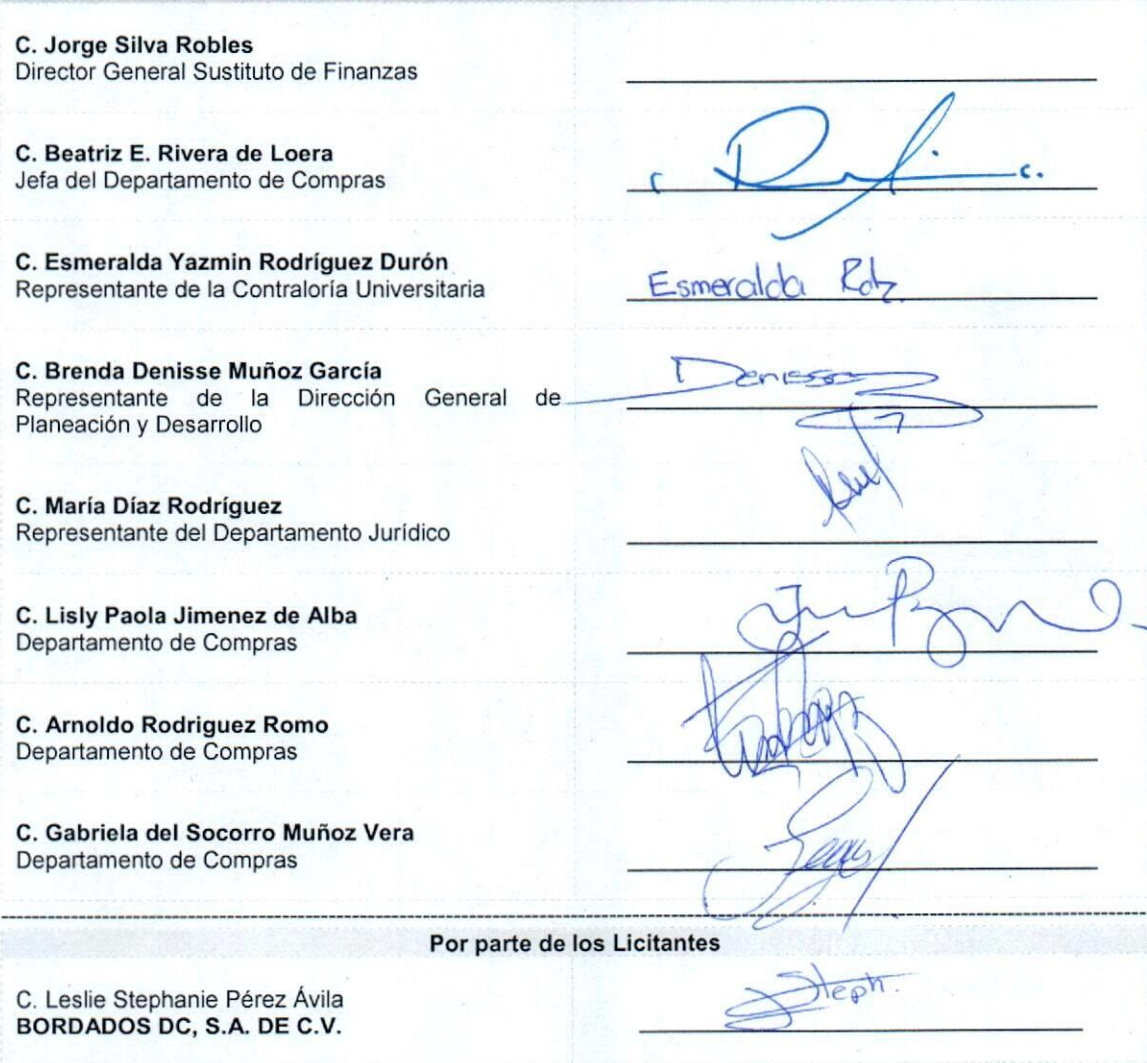 C. Jorge Silva Robles
Director General Sustituto de Finanzas
C. Beatriz E. Rivera de Loera
Jefa del Departamento de Compras
C. Esmeralda Yazmin Rodríguez Durón
Representante de la Contraloría Universitaria
Esmeralda Rdz.
C. Brenda Denisse Muñoz García
Representante de la Dirección General de
Planeación y Desarrollo
Denisse
C. María Díaz Rodríguez
Representante del Departamento Jurídico
C. Lisly Paola Jimenez de Alba
Departamento de Compras
C. Arnoldo Rodriguez Romo
Departamento de Compras
C. Gabriela del Socorro Muñoz Vera
Departamento de Compras
Por parte de los Licitantes
C. Leslie Stephanie Pérez Ávila
BORDADOS DC, S.A. DE C.V.
Steph.